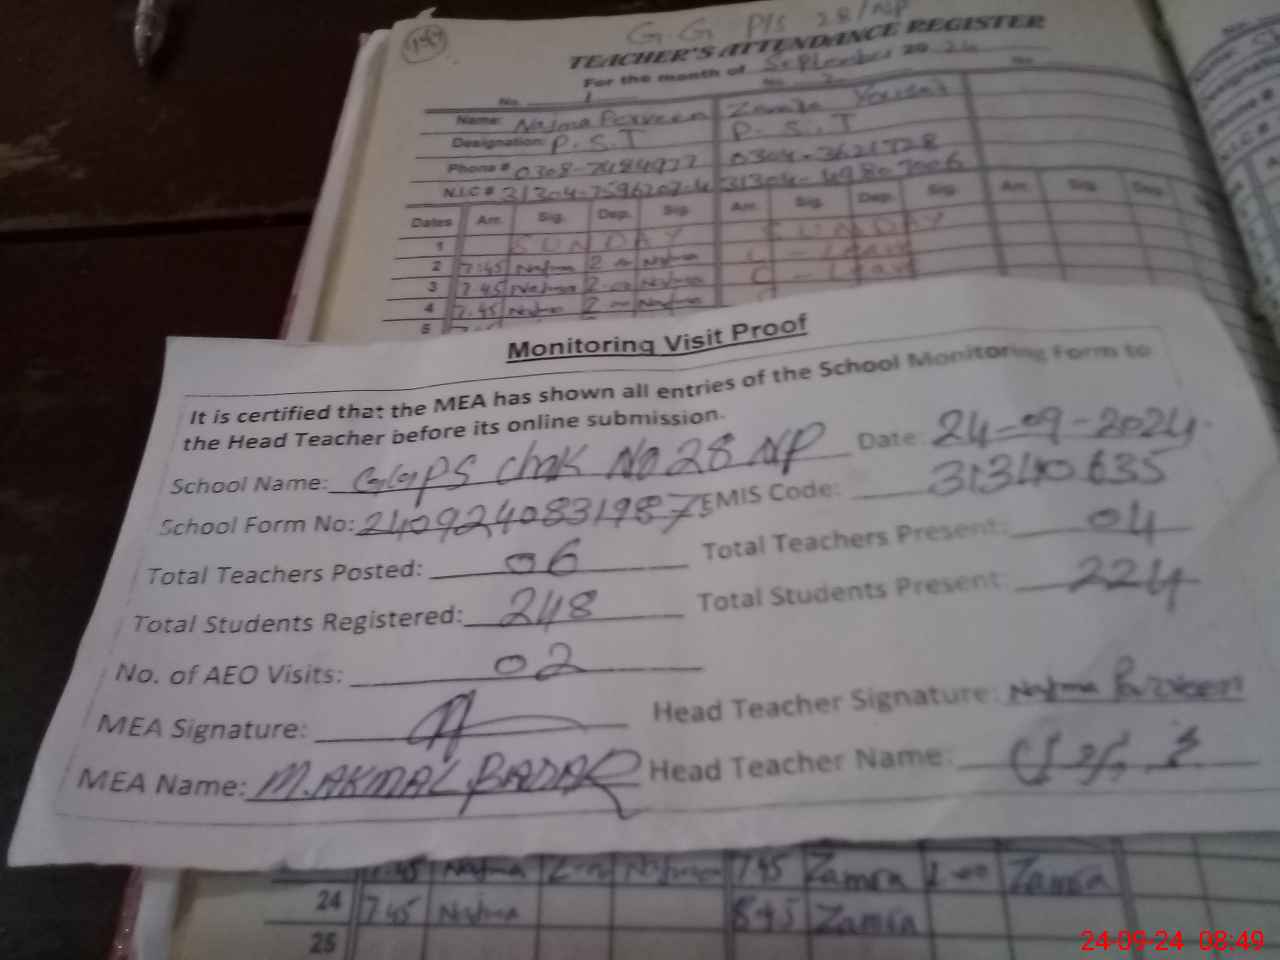 G.G P/S 28/NP
TEACHER'S ATTENDANCE REGISTER
For the month of September 20 24
No. 1 No. 2
Name: Najma Perveen Zamra
Designation: P.S.T P.S.T
Phone # 0308-7484977 0304-3621728
N.I.C # 31304-7596207-4 31304-4980700-6
Dates Arr. Sig. Dep. Sig. Arr. Sig. Dep. Sig. Arr. Sig. Dep.
1 SUNDAY SUNDAY
2 7.45 Najma 2-00 Najma C-Leave
3 7.45 Najma 2-00 Najma C-Leave
4 7.45 Najma 2-00 Najma
5
Monitoring Visit Proof
It is certified that the MEA has shown all entries of the School Monitoring Form to
the Head Teacher before its online submission.
School Name: GGPS Chak No 28 NP Date: 24-09-2024
School Form No: 2409240831987 EMIS Code: 31340635
Total Teachers Posted: 06 Total Teachers Present: 04
Total Students Registered: 248 Total Students Present: 224
No. of AEO Visits: 02
MEA Signature: Head Teacher Signature: Najma Perveen
MEA Name: M. AKMAL BADAR Head Teacher Name:
7.45 Najma 2-00 Najma 7.45 Zamra 2-00 Zamra
24 7.45 Najma 8.45 Zamra
25
24-09-24 08:49